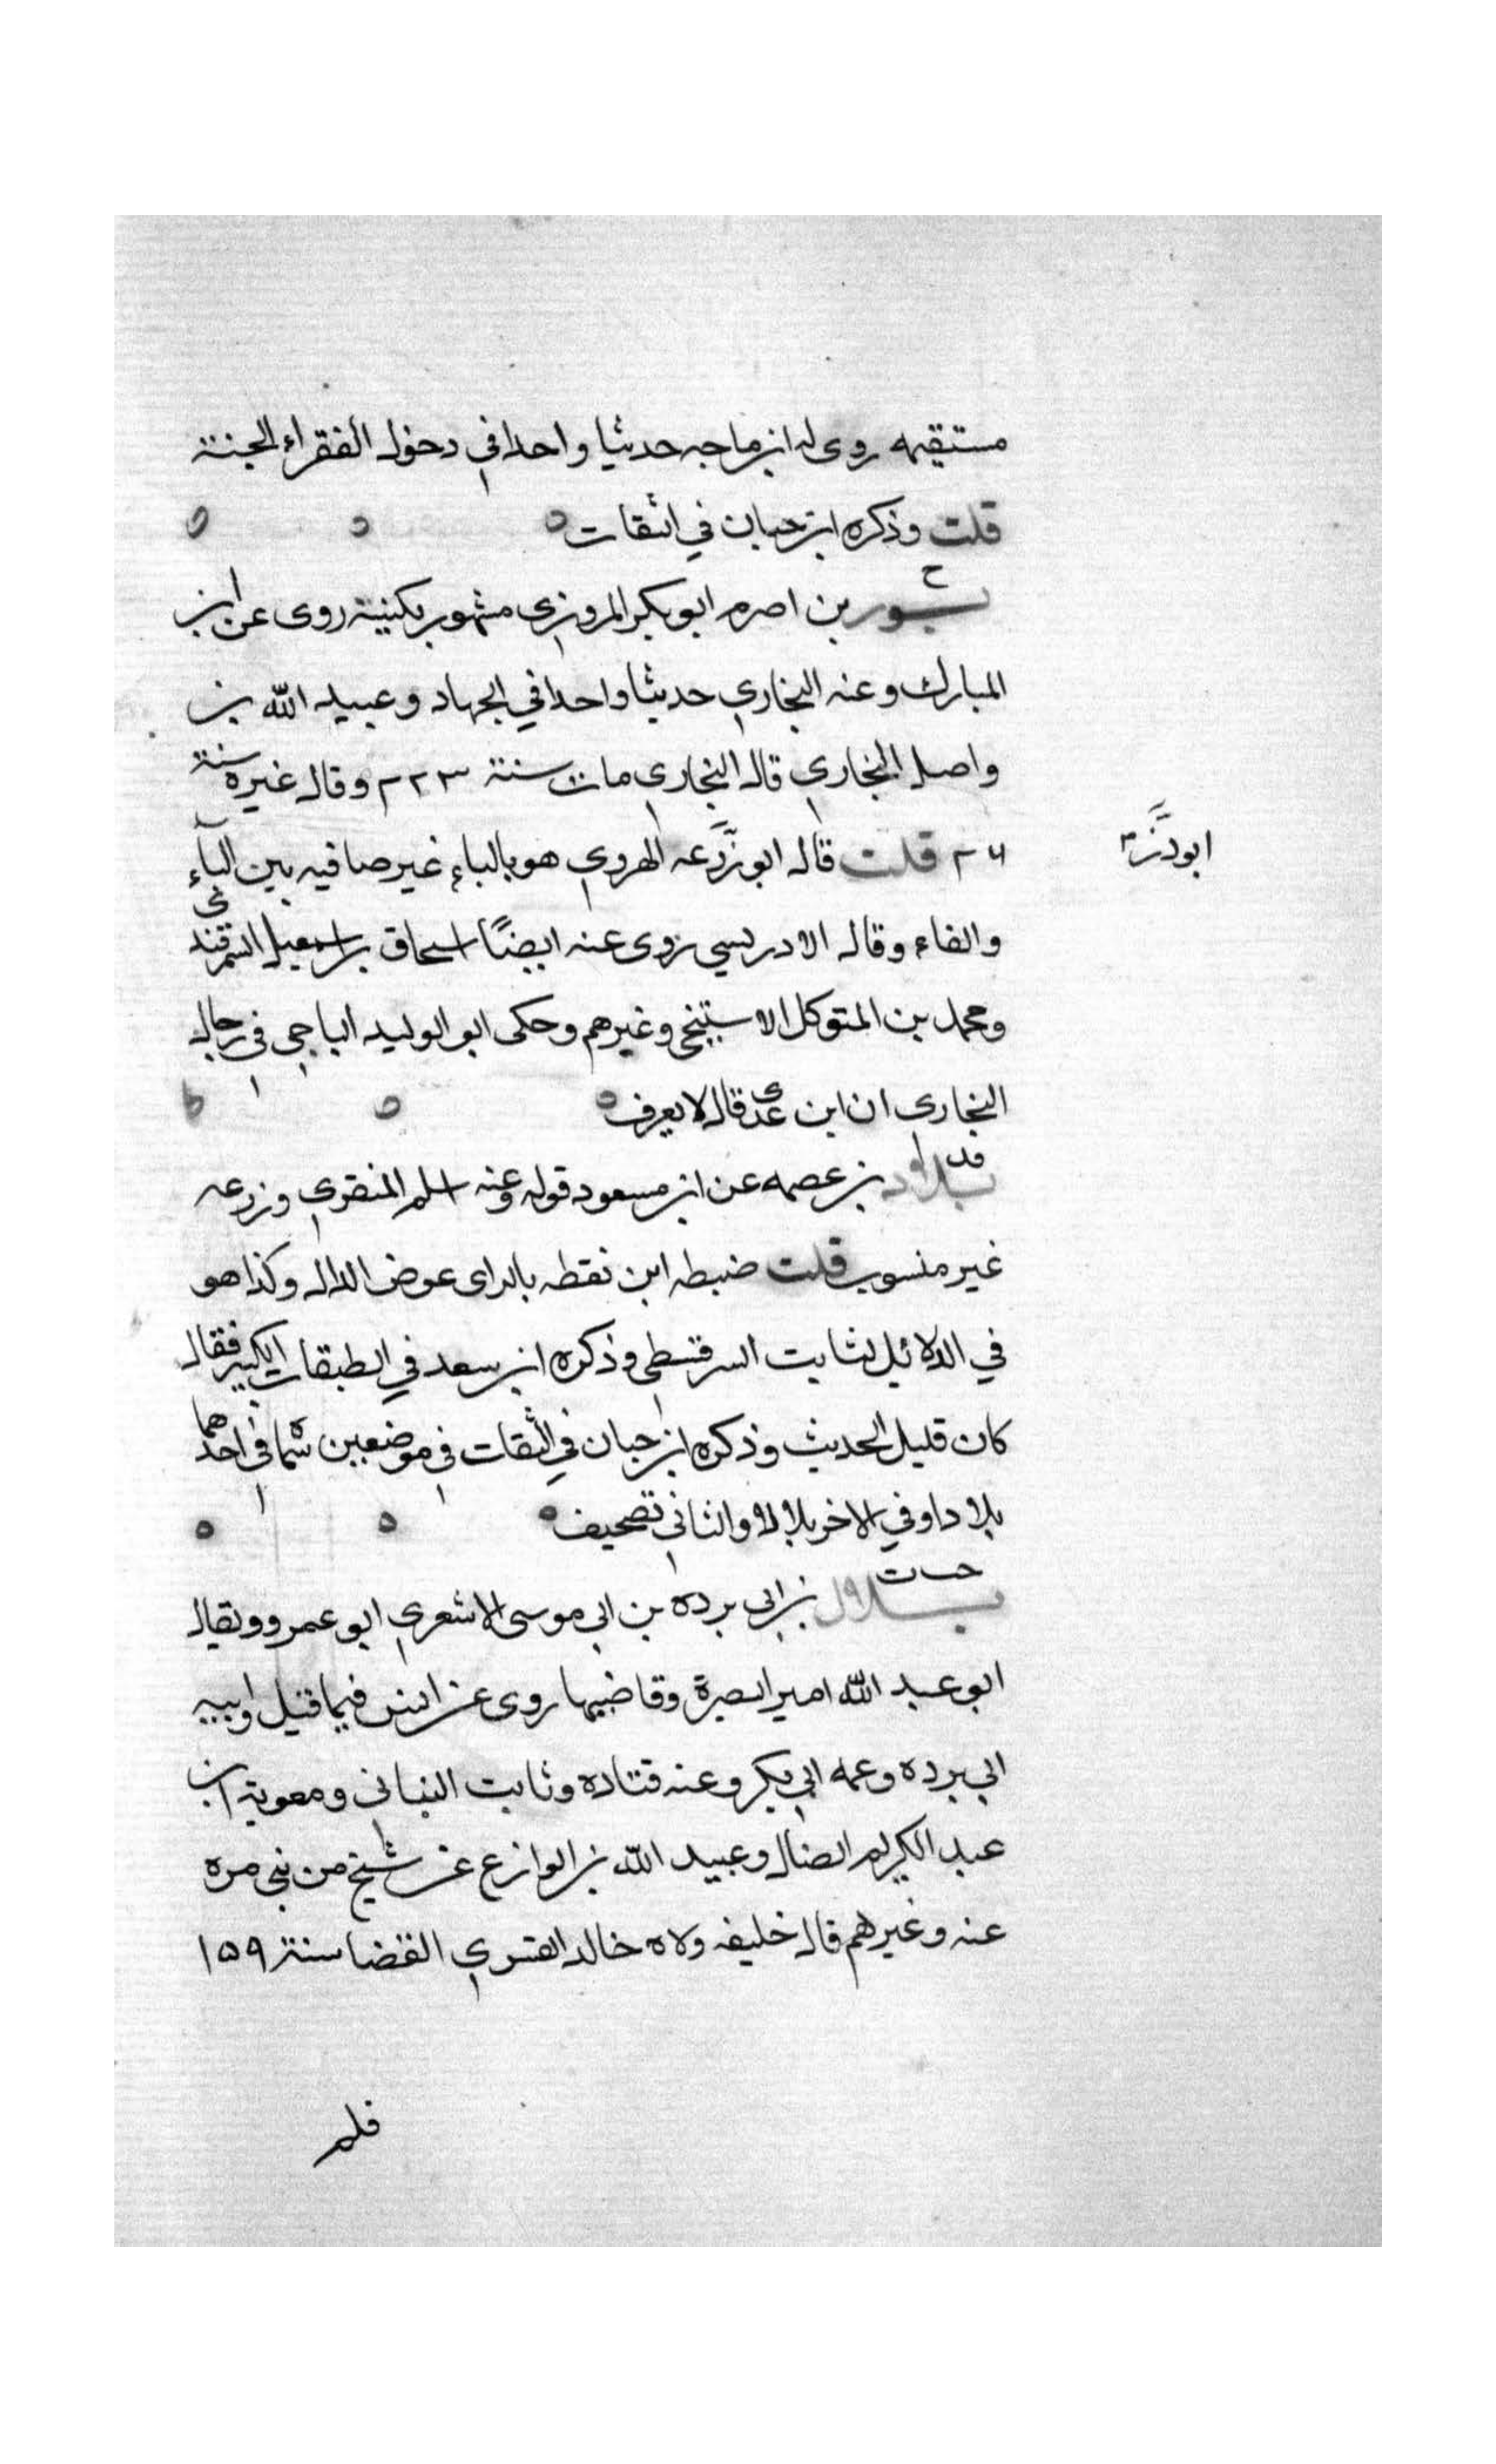 مستقيمه روى له ابن ماجه حديثا واحدا في دخول الفقراء الجنة
قلت وذكره ابن حبان في الثقات
خ
بور بن اصرم ابو بكر المروزي مشهور بكنيته روى عن ابن
المبارك وعنه البخاري حديثا واحدا في الجهاد وعبيد الله بن
واصل البخاري قال البخاري مات سنة ٢٢٣ وقال غيره سنة
٢٦ قلت قال ابو زرعه الهروي هو بالباء غير صافيه بين الباء
ابو ذر
والفاء وقال الادريسي روى عنه ايضًا اسحاق بن اسمعيل السمرقندي
ومحمد بن المتوكل الاستيخي وغيرهم وحكى ابو الوليد الباجي في رجال
البخاري ان ابن عدي قال لا يعرف
قد
بلاد بن عصمه عن ابن مسعود قوله وعنه اسلم المنقري وزرعه
غير منسوب قلت ضبطه ابن نقطه بالزاى عوض الدال وكذا هو
في الدلائل لثابت السرقسطي وذكره ابن سعد في الطبقات الكبير فقال
كان قليل الحديث وذكره ابن حبان في الثقات في موضعين سماه في احدهما
بلادا وفي الاخر بلالا والثاني تصحيف
خت ت
بلال بن ابي برده بن ابي موسى الاشعري ابو عمرو ويقال
ابو عبد الله امير البصرة وقاضيها روى عن انس فيما قيل وابيه
ابي برده وعمه ابي بكر وعنه قتاده وثابت البناني ومعوية ابن
عبد الكريم الضال وعبيد الله بن الوازع عن شيخ من بني مره
عنه وغيرهم قال خليفه ولاه خالد القسري القضا سنة ١٥٩
فلم